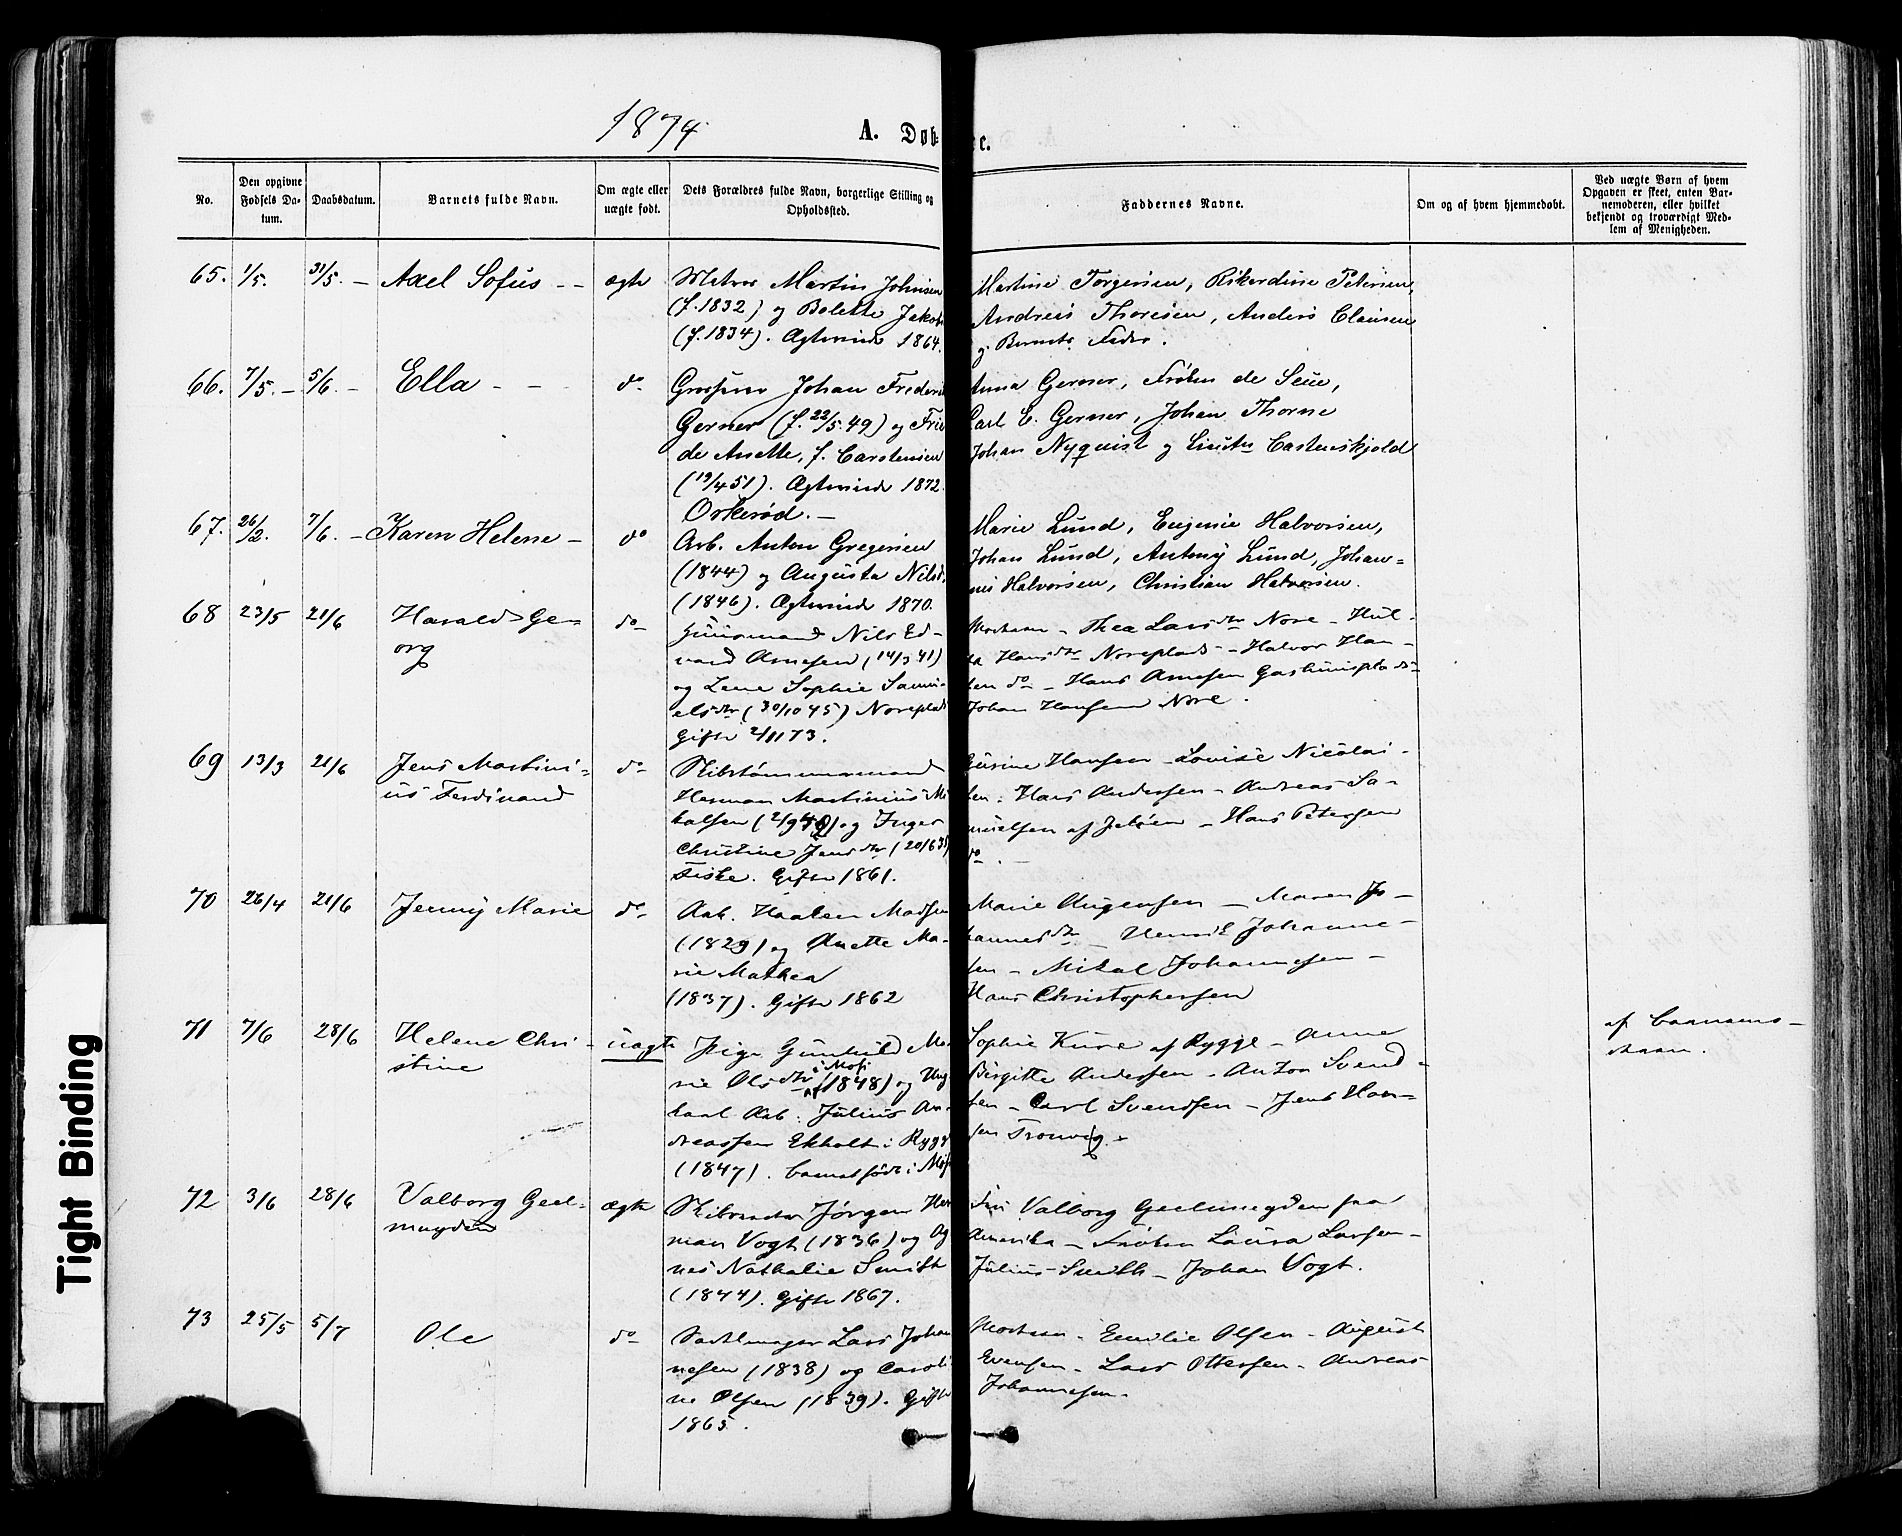 1874
A. Døb
e.
No.
Den opgivne Fødsels Da-
tum.
Daabsdatum.
Barnets fulde Navn.
Om ægte eller
uægte født.
Dets Forældres fulde Navn, borgerlige Stilling og
Opholdssted.
Faddernes Navne.
Om og af hvem hjemmedøbt.
Ved uægte Børn af hvem
Opgaven er skeet, enten Bar-
nemoderen, eller hvilket
bekjendt og troværdigt Med-
lem af Menigheden.
65. 1/5. 31/5. - Axel Sofus - - ægte
Martin Johnsen
(f. 1832) og Bolette Jakob
(f. 1834). Ægtevinde 1864.
Martine Torgersen, Rikardine Petersen,
Andreas Thoresen, Anders Clausen
g. Barnets Fader.
66. 7/5. - 5/6. - Ella - - do
Johan Frederi
Gerner (f. 22/5. 49) og Fri
de Anette, f. Carstensen
(19/4 51). Ægtevinde 1872.
Orkerød. -
Anna Gerner, Frøken de Seue,
Carl E. Gerner, Johan Thorne
Johan Nyquist g Castenskjold
67. 26/2. 7/6. - Karen Helene - do
Arb. Anton Gregersen
(1844) og Augusta Nilsd
(1846). Ægtevinde 1870.
Marie Lund, Eugenie Halvorsen,
Johan Lund, Antony Lund, Johan=
nes Halvorsen, Christian Halvorsen.
68 23/5 21/6 Harald Ge=
org do
Huusmand Nils Ed-
vard Arnesen (14/3 41)
og Lene Sophie Samu-
elsdtr (30/10 45) Noreplad
Gifte 2/11 73.
Moderen - Thea Larsdtr Nore - Hul-
da Hansdtr Noreplads - Halvor Han-
sen do - Hans Arnesen
Johan Hansen Nore.
69 13/3 21/6 Jens Martini=
us Ferdinand do
Skibstømmermand
Herman Martinius Mi
kalsen og Inger
Christine Jensdtr (20/6 35)
Fiske. Gifte 1861.
Hansen - Lovise Nicolai-
sen - Hans Andersen - Andreas Sa-
muelsen af Jeløen - Hans Petersen
do. -
70 26/4 21/6 Jenny Marie do
Arb. Haaken Madsen
(1829) og Anette Ma-
rie Mathea
(1837). Gifte 1862
Marie Augensen - Maren Jo-
hannesdtr - Henrik Johanne-
sen - Mikal Johannesen -
Hans Christophersen
71 7/6 28/6 Helene Chri-
stine uægte
Pige Gunhild Ma-
rie Olsdtr i Moss (1848) og Ung
karl Arb. Julius An-
dreassen Ekholt i Rygge
(1847). Barnet født i Moss
Sophie Kure af Rygge - Anne
Birgitte Andersen - Anton Svend-
sen - Carl Svendsen - Jens Han-
sen Tronvig.
af Barnems-
72 3/6 28/6 Valborg Geel-
muyden ægte
Skibsreder Jørgen Her
man Vogt (1836) og Ag
nes Nathalie Smith
(1844). Gifte 1867.
Fru Valborg Geelmuyden fra
Amerika - Frøken Laura Larsen -
Julius Smith - Johan Vogt.
73 25/5 5/7 Ole do
Sadelmager Lars Johan
nesen (1838) og Caroli
ne Olsen (1839). Gifte
1865.
Moderen - Emilie Olsen - August
Evensen - Lars Ottersen - Andreas
Johannesen -
Tight Binding